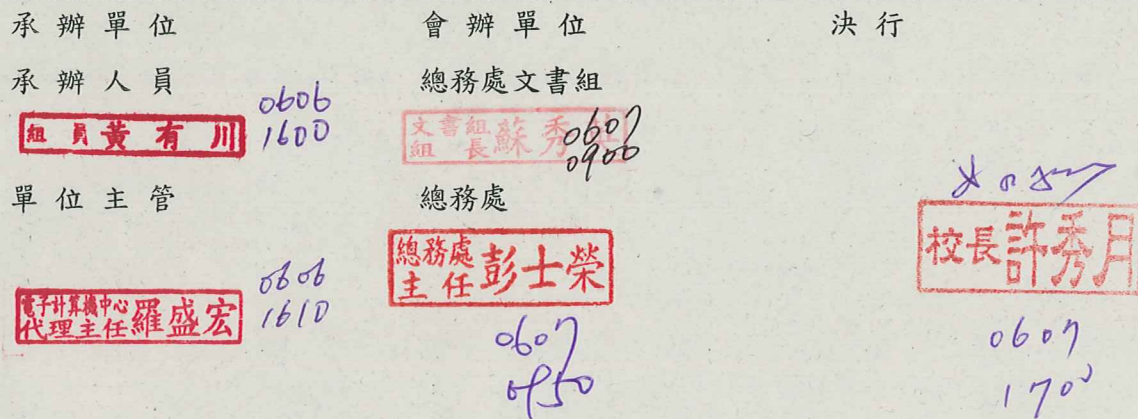 承辦單位
承辦人員
組員 黃有川
0606
1600
單位主管
電子計算機中心
代理主任 羅盛宏
0606
1610
會辦單位
總務處文書組
文書組
組長 蘇秀
0607
0900
總務處
總務處
主任 彭士榮
0607
0950
決行
校長 許秀月
0607
1700